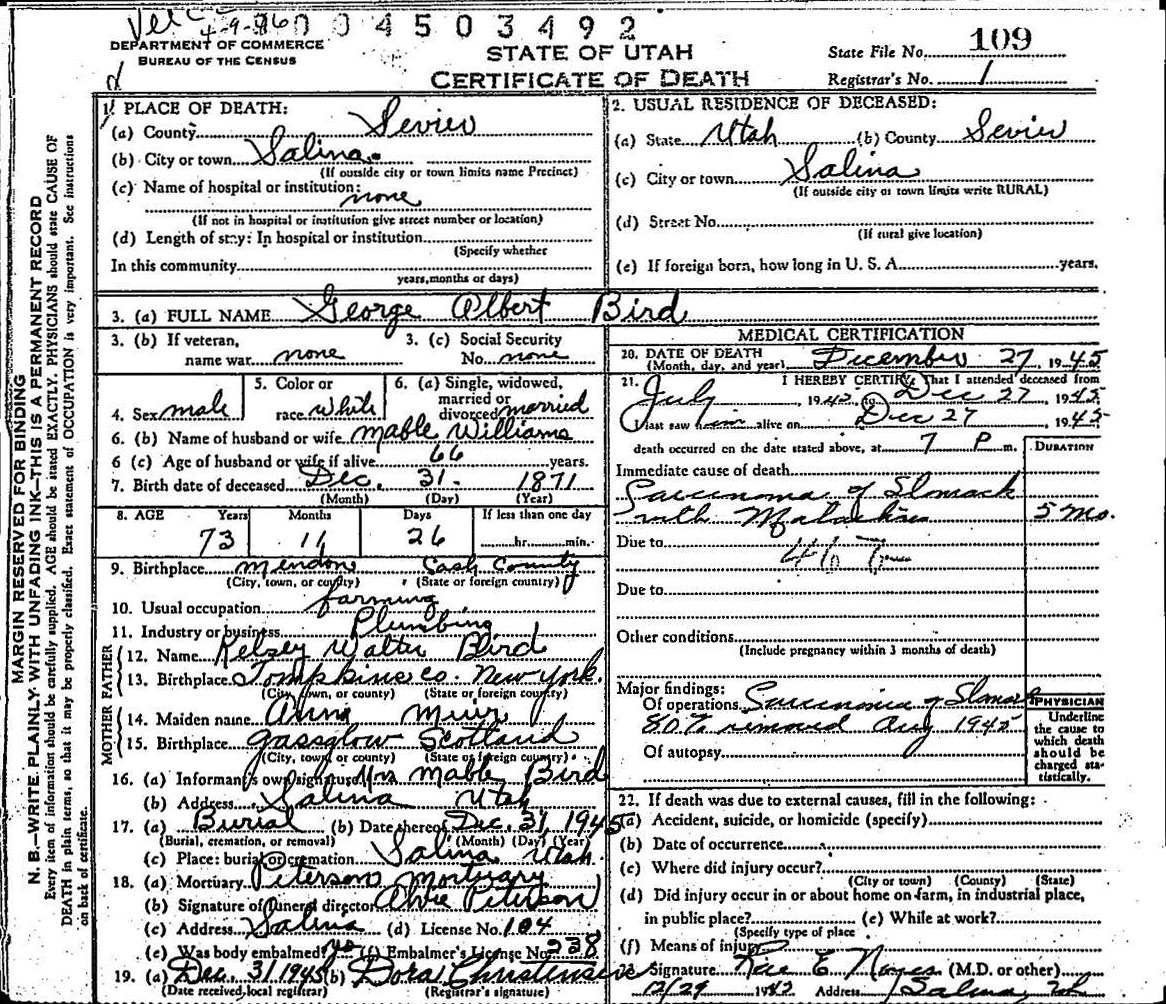 4-9-86
0 0 4 5 0 3 4 9 2
DEPARTMENT OF COMMERCE
BUREAU OF THE CENSUS
STATE OF UTAH
CERTIFICATE OF DEATH
State File No. 109
Registrar's No. 1
MARGIN RESERVED FOR BINDING
N. B.—WRITE PLAINLY WITH UNFADING INK—THIS IS A PERMANENT RECORD
Every item of information should be carefully supplied. AGE should be stated EXACTLY. PHYSICIANS should state CAUSE OF
DEATH in plain terms, so that it may be properly classified. Exact statement of OCCUPATION is very important. See instructions
on back of certificate.
1. PLACE OF DEATH:
(a) County Sevier
(b) City or town Salina.
(If outside city or town limits name Precinct)
(c) Name of hospital or institution:
none
(If not in hospital or institution give street number or location)
(d) Length of stay: In hospital or institution
(Specify whether
In this community
years, months or days)
2. USUAL RESIDENCE OF DECEASED:
(a) State Utah (b) County Sevier
(c) City or town Salina
(If outside city or town limits write RURAL)
(d) Street No.
(If rural give location)
(e) If foreign born, how long in U. S. A. years.
3. (a) FULL NAME George Albert Bird
3. (b) If veteran,
name war none
3. (c) Social Security
No. none
4. Sex male
5. Color or
race white
6. (a) Single, widowed,
married or
divorced married
6. (b) Name of husband or wife Mable Williams
6 (c) Age of husband or wife if alive 66 years.
7. Birth date of deceased Dec. 31- 1871
(Month) (Day) (Year)
8. AGE Years Months Days If less than one day
73 11 26 hr. min.
9. Birthplace Mendon Cash County
(City, town, or county) (State or foreign country)
10. Usual occupation farming
11. Industry or business Plumbing
FATHER
12. Name Kelsey Walter Bird
13. Birthplace Tompkins co. New York.
(City, town, or county) (State or foreign country)
MOTHER
14. Maiden name Anna Muir
15. Birthplace Gassglow Scotland
(City, town, or county) (State or foreign country)
16. (a) Informant's own signature Mrs Mable Bird
(b) Address Salina Utah
17. (a) Burial (b) Date thereof Dec. 31, 1945
(Burial, cremation, or removal) (Month) (Day) (Year)
(c) Place: burial or cremation Salina Utah.
18. (a) Mortuary Peterson Mortuary
(b) Signature of funeral director Peterson
(c) Address Salina (d) License No. 104
(e) Was body embalmed? yes (f) Embalmer's License No. 238
19. (a) Dec. 31 1945 (b) Dora Christensen
(Date received local registrar) (Registrar's signature)
MEDICAL CERTIFICATION
20. DATE OF DEATH
(Month, day, and year) December 27, 1945
21. I HEREBY CERTIFY, That I attended deceased from
July, 1945, to Dec 27, 1945
I last saw him alive on Dec 27, 1945
death occurred on the date stated above, at 7 P m.
DURATION
Immediate cause of death
Sarcinoma of Stomack
with 5 Mo.
Due to 46
Due to
Other conditions
(Include pregnancy within 3 months of death)
Major findings:
Of operations Sarcinonia of Stomack
80% removed Aug 1945
Of autopsy
PHYSICIAN
Underline
the cause to
which death
should be
charged sta-
tistically.
22. If death was due to external causes, fill in the following:
(a) Accident, suicide, or homicide (specify)
(b) Date of occurrence
(c) Where did injury occur?
(City or town) (County) (State)
(d) Did injury occur in or about home on farm, in industrial place,
in public place? (e) While at work?
(Specify type of place
(f) Means of injury
Signature Rae E Noyes (M.D. or other)
12/29 1942 Address Salina, Utah